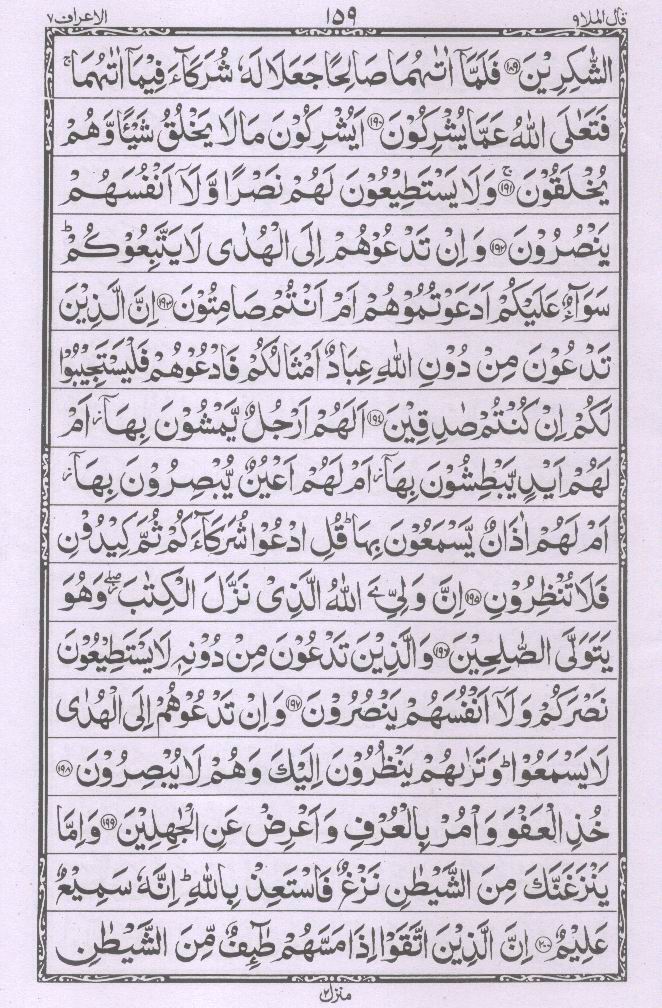 قال الملا٩ ١۵٩ الاعراف٧
الشّٰكِرِيْنَ ﴿١٨٩﴾ فَلَمَّآ اٰتٰىهُمَا صَالِحًا جَعَلَا لَهٗ شُرَكَآءَ فِيْمَآ اٰتٰىهُمَا ۚ
فَتَعٰلَى اللّٰهُ عَمَّا يُشْرِكُوْنَ ﴿١٩٠﴾ اَيُشْرِكُوْنَ مَا لَا يَخْلُقُ شَيْـًٔا وَّهُمْ
يُخْلَقُوْنَ ۚ ﴿١٩١﴾ وَلَا يَسْتَطِيْعُوْنَ لَهُمْ نَصْرًا وَّلَآ اَنْفُسَهُمْ
يَنْصُرُوْنَ ﴿١٩٢﴾ وَاِنْ تَدْعُوْهُمْ اِلَى الْهُدٰى لَا يَتَّبِعُوْكُمْ ؕ
سَوَآءٌ عَلَيْكُمْ اَدَعَوْتُمُوْهُمْ اَمْ اَنْتُمْ صَامِتُوْنَ ﴿١٩٣﴾ اِنَّ الَّذِيْنَ
تَدْعُوْنَ مِنْ دُوْنِ اللّٰهِ عِبَادٌ اَمْثَالُكُمْ فَادْعُوْهُمْ فَلْيَسْتَجِيْبُوْا
لَكُمْ اِنْ كُنْتُمْ صٰدِقِيْنَ ﴿١٩٤﴾ اَلَهُمْ اَرْجُلٌ يَّمْشُوْنَ بِهَآ ز اَمْ
لَهُمْ اَيْدٍ يَّبْطِشُوْنَ بِهَآ ز اَمْ لَهُمْ اَعْيُنٌ يُّبْصِرُوْنَ بِهَآ ز
اَمْ لَهُمْ اٰذَانٌ يَّسْمَعُوْنَ بِهَا ؕ قُلِ ادْعُوْا شُرَكَآءَكُمْ ثُمَّ كِيْدُوْنِ
فَلَا تُنْظِرُوْنِ ﴿١٩٥﴾ اِنَّ وَلِيِّۦَ اللّٰهُ الَّذِيْ نَزَّلَ الْكِتٰبَ ۖز وَهُوَ
يَتَوَلَّى الصّٰلِحِيْنَ ﴿١٩٦﴾ وَالَّذِيْنَ تَدْعُوْنَ مِنْ دُوْنِهٖ لَا يَسْتَطِيْعُوْنَ
نَصْرَكُمْ وَلَآ اَنْفُسَهُمْ يَنْصُرُوْنَ ﴿١٩٧﴾ وَاِنْ تَدْعُوْهُمْ اِلَى الْهُدٰى
لَا يَسْمَعُوْا ؕ وَتَرٰىهُمْ يَنْظُرُوْنَ اِلَيْكَ وَهُمْ لَا يُبْصِرُوْنَ ﴿١٩٨﴾
خُذِ الْعَفْوَ وَاْمُرْ بِالْعُرْفِ وَاَعْرِضْ عَنِ الْجٰهِلِيْنَ ﴿١٩٩﴾ وَاِمَّا
يَنْزَغَنَّكَ مِنَ الشَّيْطٰنِ نَزْغٌ فَاسْتَعِذْ بِاللّٰهِ ؕ اِنَّهٗ سَمِيْعٌ
عَلِيْمٌ ﴿٢٠٠﴾ اِنَّ الَّذِيْنَ اتَّقَوْا اِذَا مَسَّهُمْ طٰٓئِفٌ مِّنَ الشَّيْطٰنِ
منزل٢